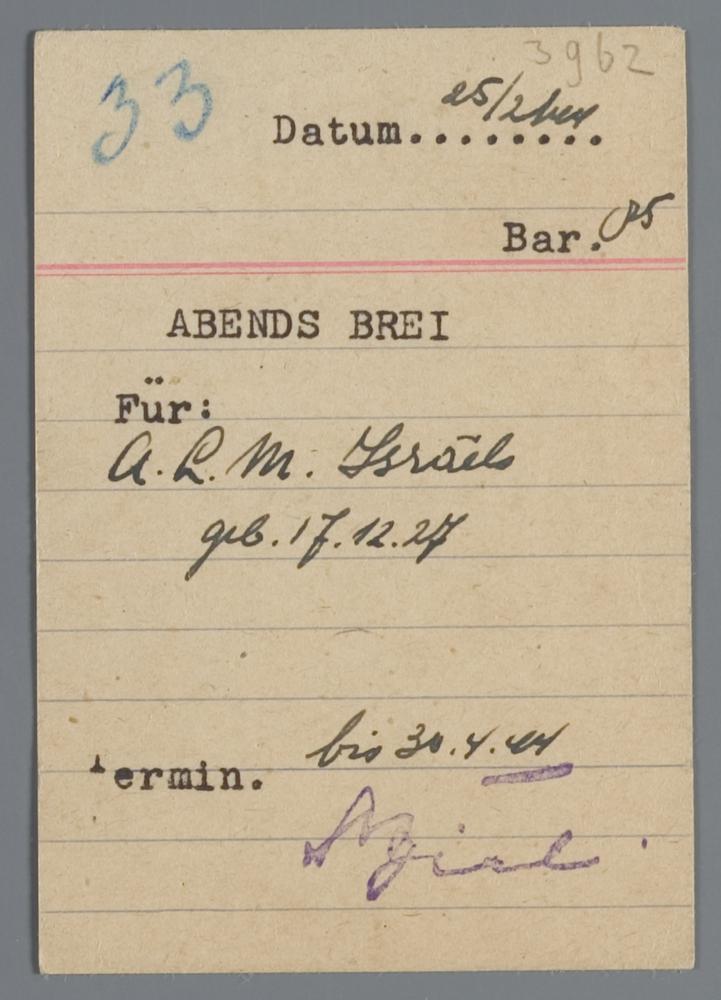 3962
33
Datum......... 25/2 44
Bar. 85
ABENDS BREI
Für:
A. L. M. Israëls
geb. 17.12.27
Termin. bis 30.4.44